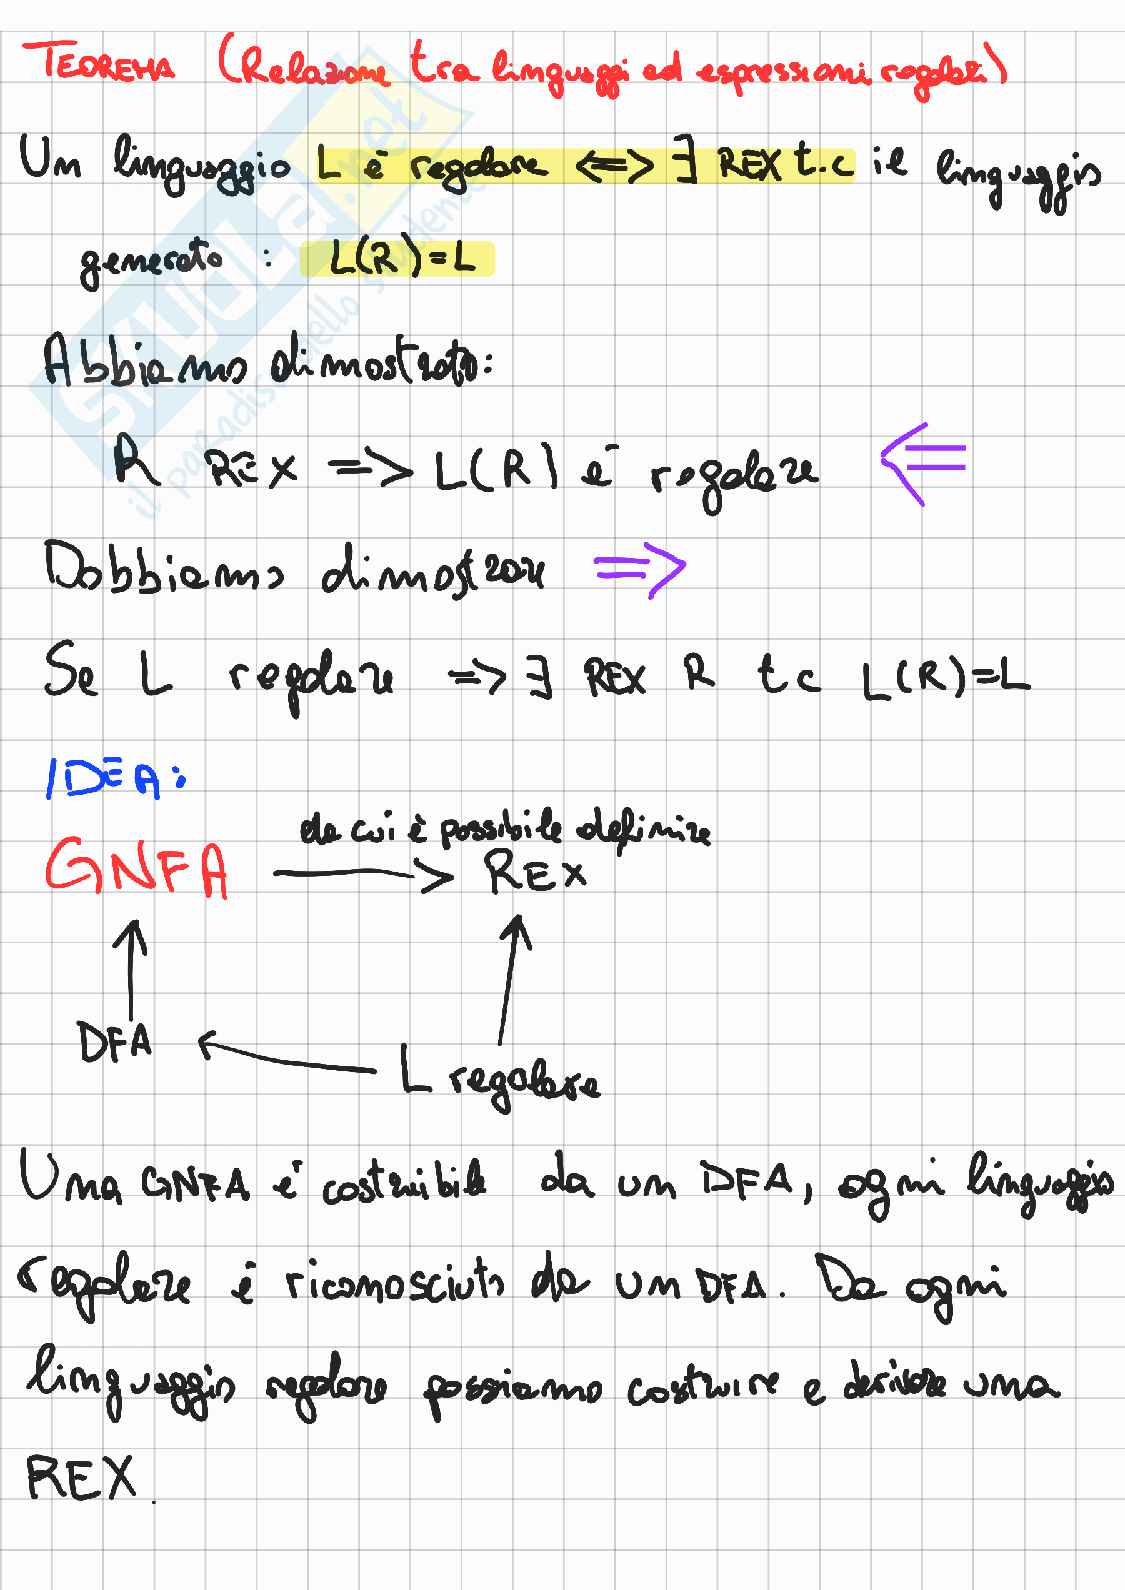 TEOREMA (Relazione tra linguaggi ed espressioni regolari)
Un linguaggio L è regolare <=> ∃ REX t.c il linguaggio
generato : L(R)=L
Abbiamo dimostrato:
R REX => L(R) è regolare <=
Dobbiamo dimostrare =>
Se L regolare => ∃ REX R tc L(R)=L
IDEA:
da cui è possibile definire
GNFA → REX
DFA
L regolare
Una GNFA è costruibile da un DFA, ogni linguaggio
regolare è riconosciuto da un DFA. Da ogni
linguaggio regolare possiamo costruire e derivare una
REX.
SKUOLA.net
il paradiso dello studente